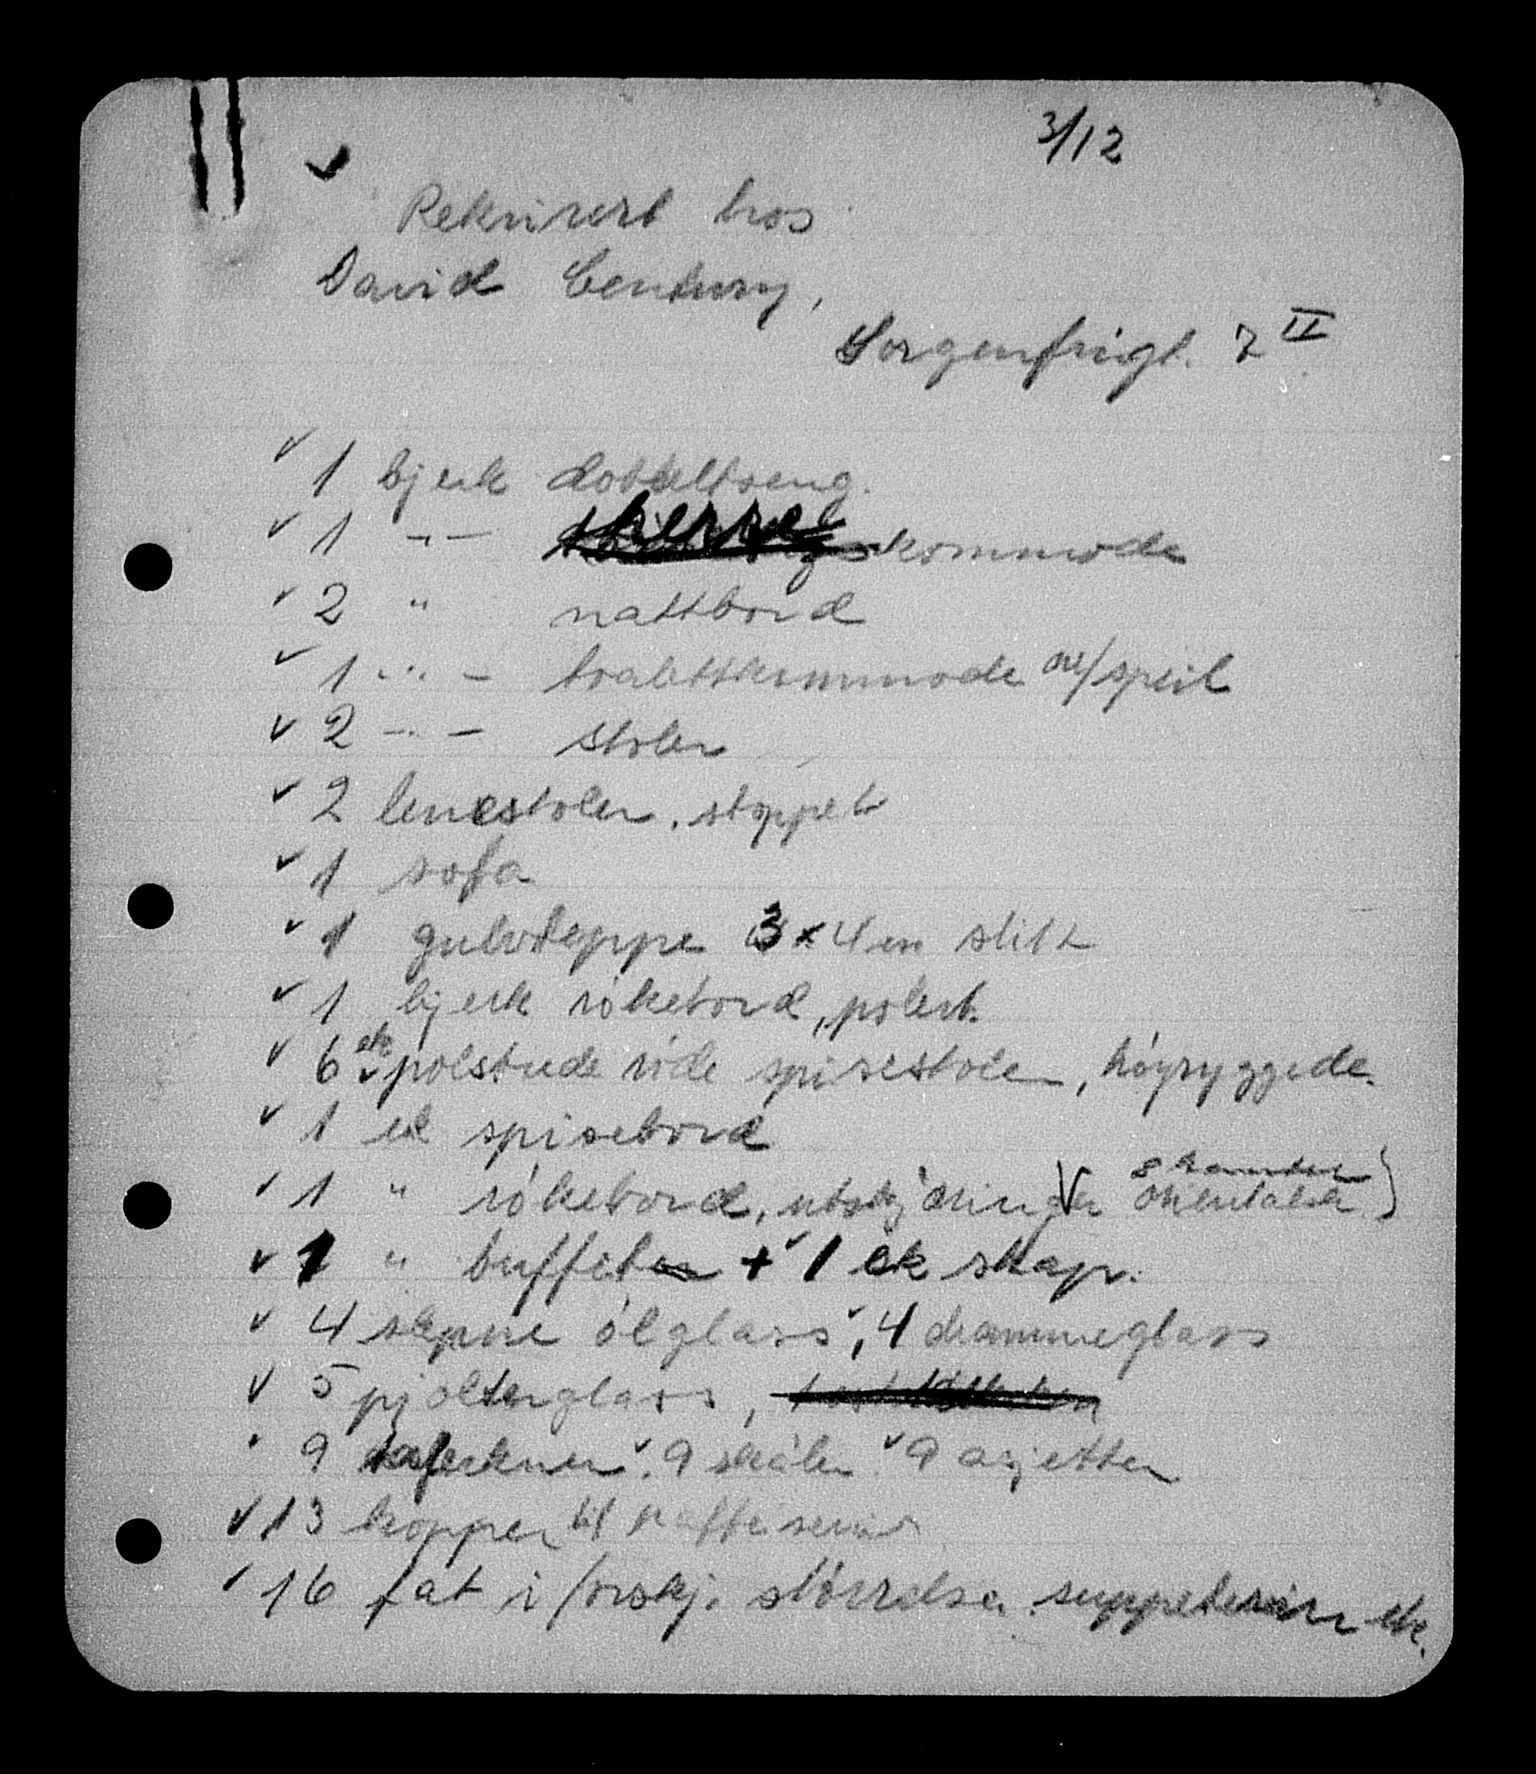 3/12
✓
Rekvirert hos
David Century,
Sorgenfrigt. 7 II
✓ 1 bjerk dobbeltseng.
✓ 1 -"- herrekommode
✓ 2 " nattbord
✓ 1 -"- toalettkommode m/speil
✓ 2 -"- stoler
✓ 2 lenestoler. stoppet
✓ 1 sofa
✓ 1 gulvteppe 3 x 4 m slitt
✓ 1 bjerk rökebord, polert.
✓ 6 ek polstrede röde spisestoler, höyryggede.
✓ 1 ek spisebord
✓ 1 " rökebord, utskjæringer orientalsk)
✓ 1 " buffet + ✓ 1 ek skap.
✓ 4 slepne ölglass, ✓ 4 drammeglass
✓ 5 pjolterglass,
9 tallerkner. ✓ 9 skåler. ✓ 9 asjetter
✓ 13 kopper til kaffeservise
✓ 16 fat i forskj. störrelser. suppeterrin etc.